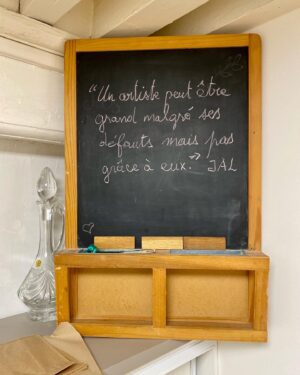 “Un artiste peut être
grand malgré ses
défauts mais pas
grâce à eux.” JAL